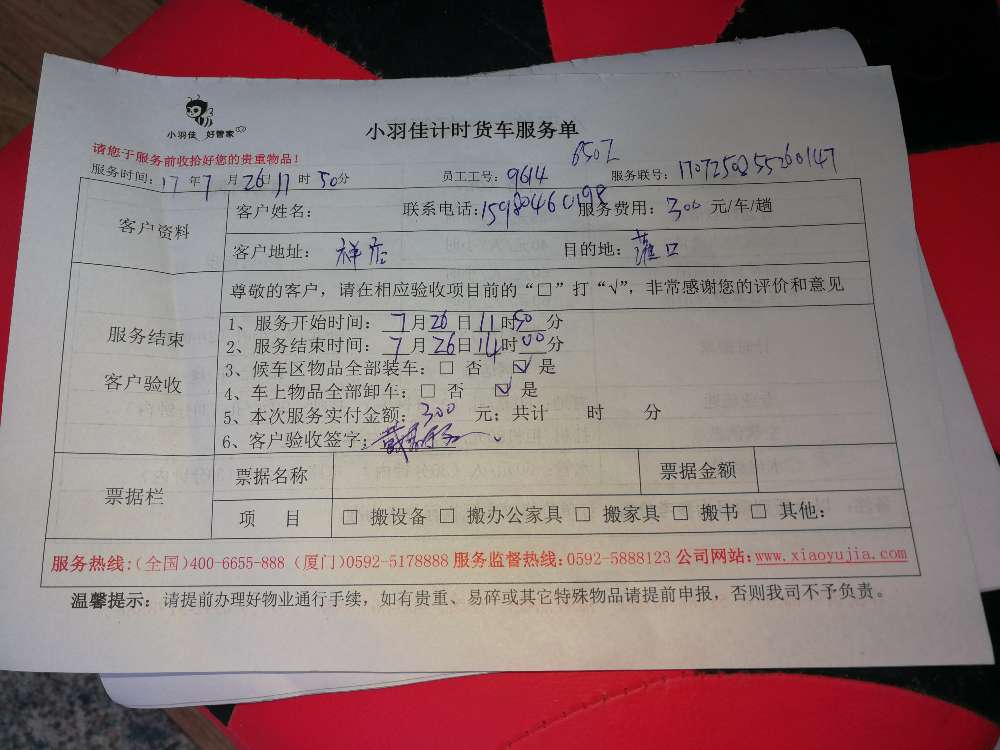 小羽佳 好管家
小羽佳计时货车服务单
请您于服务前收拾好您的贵重物品！
服务时间：17年7月26日11时50分 员工工号：9614 6507 服务联号：1707250855260147
客户资料
客户姓名： 联系电话：15980460198 服务费用：300 元/车/趟
客户地址： 祥店 目的地： 灌口
服务结束
客户验收
尊敬的客户，请在相应验收项目前的“□”打“√”，非常感谢您的评价和意见
1、服务开始时间：7月26日11时50分
2、服务结束时间：7月26日14时00分
3、候车区物品全部装车：□ 否 ☑ 是
4、车上物品全部卸车：□ 否 ☑ 是
5、本次服务实付金额：300 元；共计 时 分
6、客户验收签字：
票据栏
票据名称 票据金额
项 目 □ 搬设备 □ 搬办公家具 □ 搬家具 □ 搬书 □ 其他：
服务热线：(全国)400-6655-888 (厦门)0592-5178888 服务监督热线：0592-5888123 公司网站：www.xiaoyujia.com
温馨提示：请提前办理好物业通行手续，如有贵重、易碎或其它特殊物品请提前申报，否则我司不予负责。